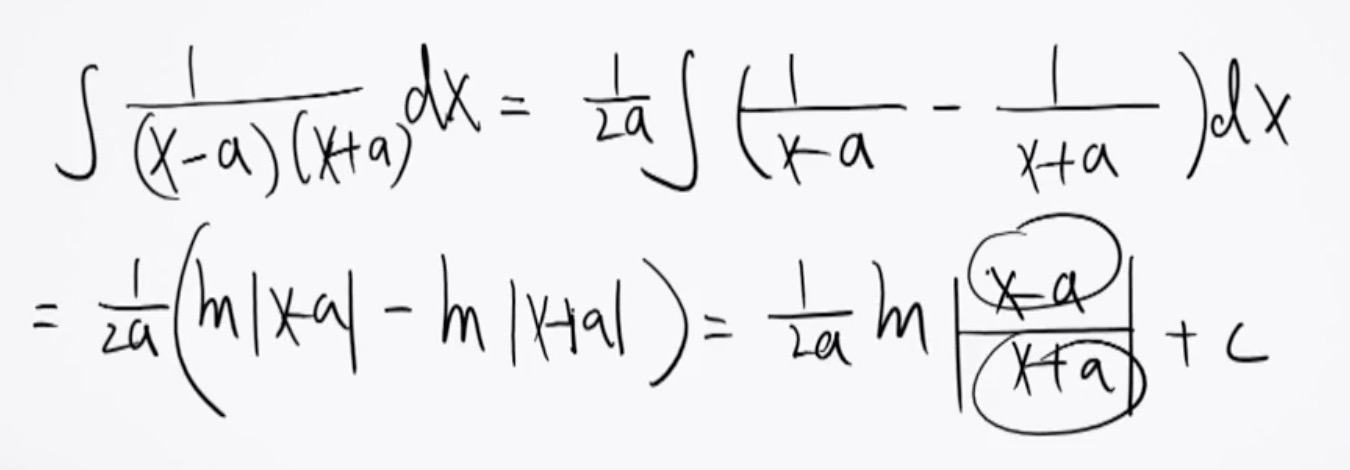 ∫ 1/((x-a)(x+a)) dx = 1/(2a) ∫ (1/(x-a) - 1/(x+a)) dx
= 1/(2a) (ln|x-a| - ln|x+a|) = 1/(2a) ln|(x-a)/(x+a)| + c